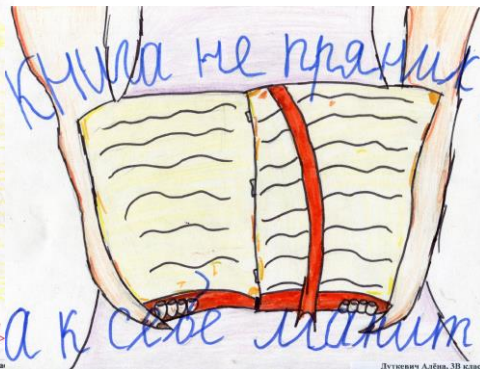 книга не пряник
а к себе манит
Луткевич Алёна, 3В клас